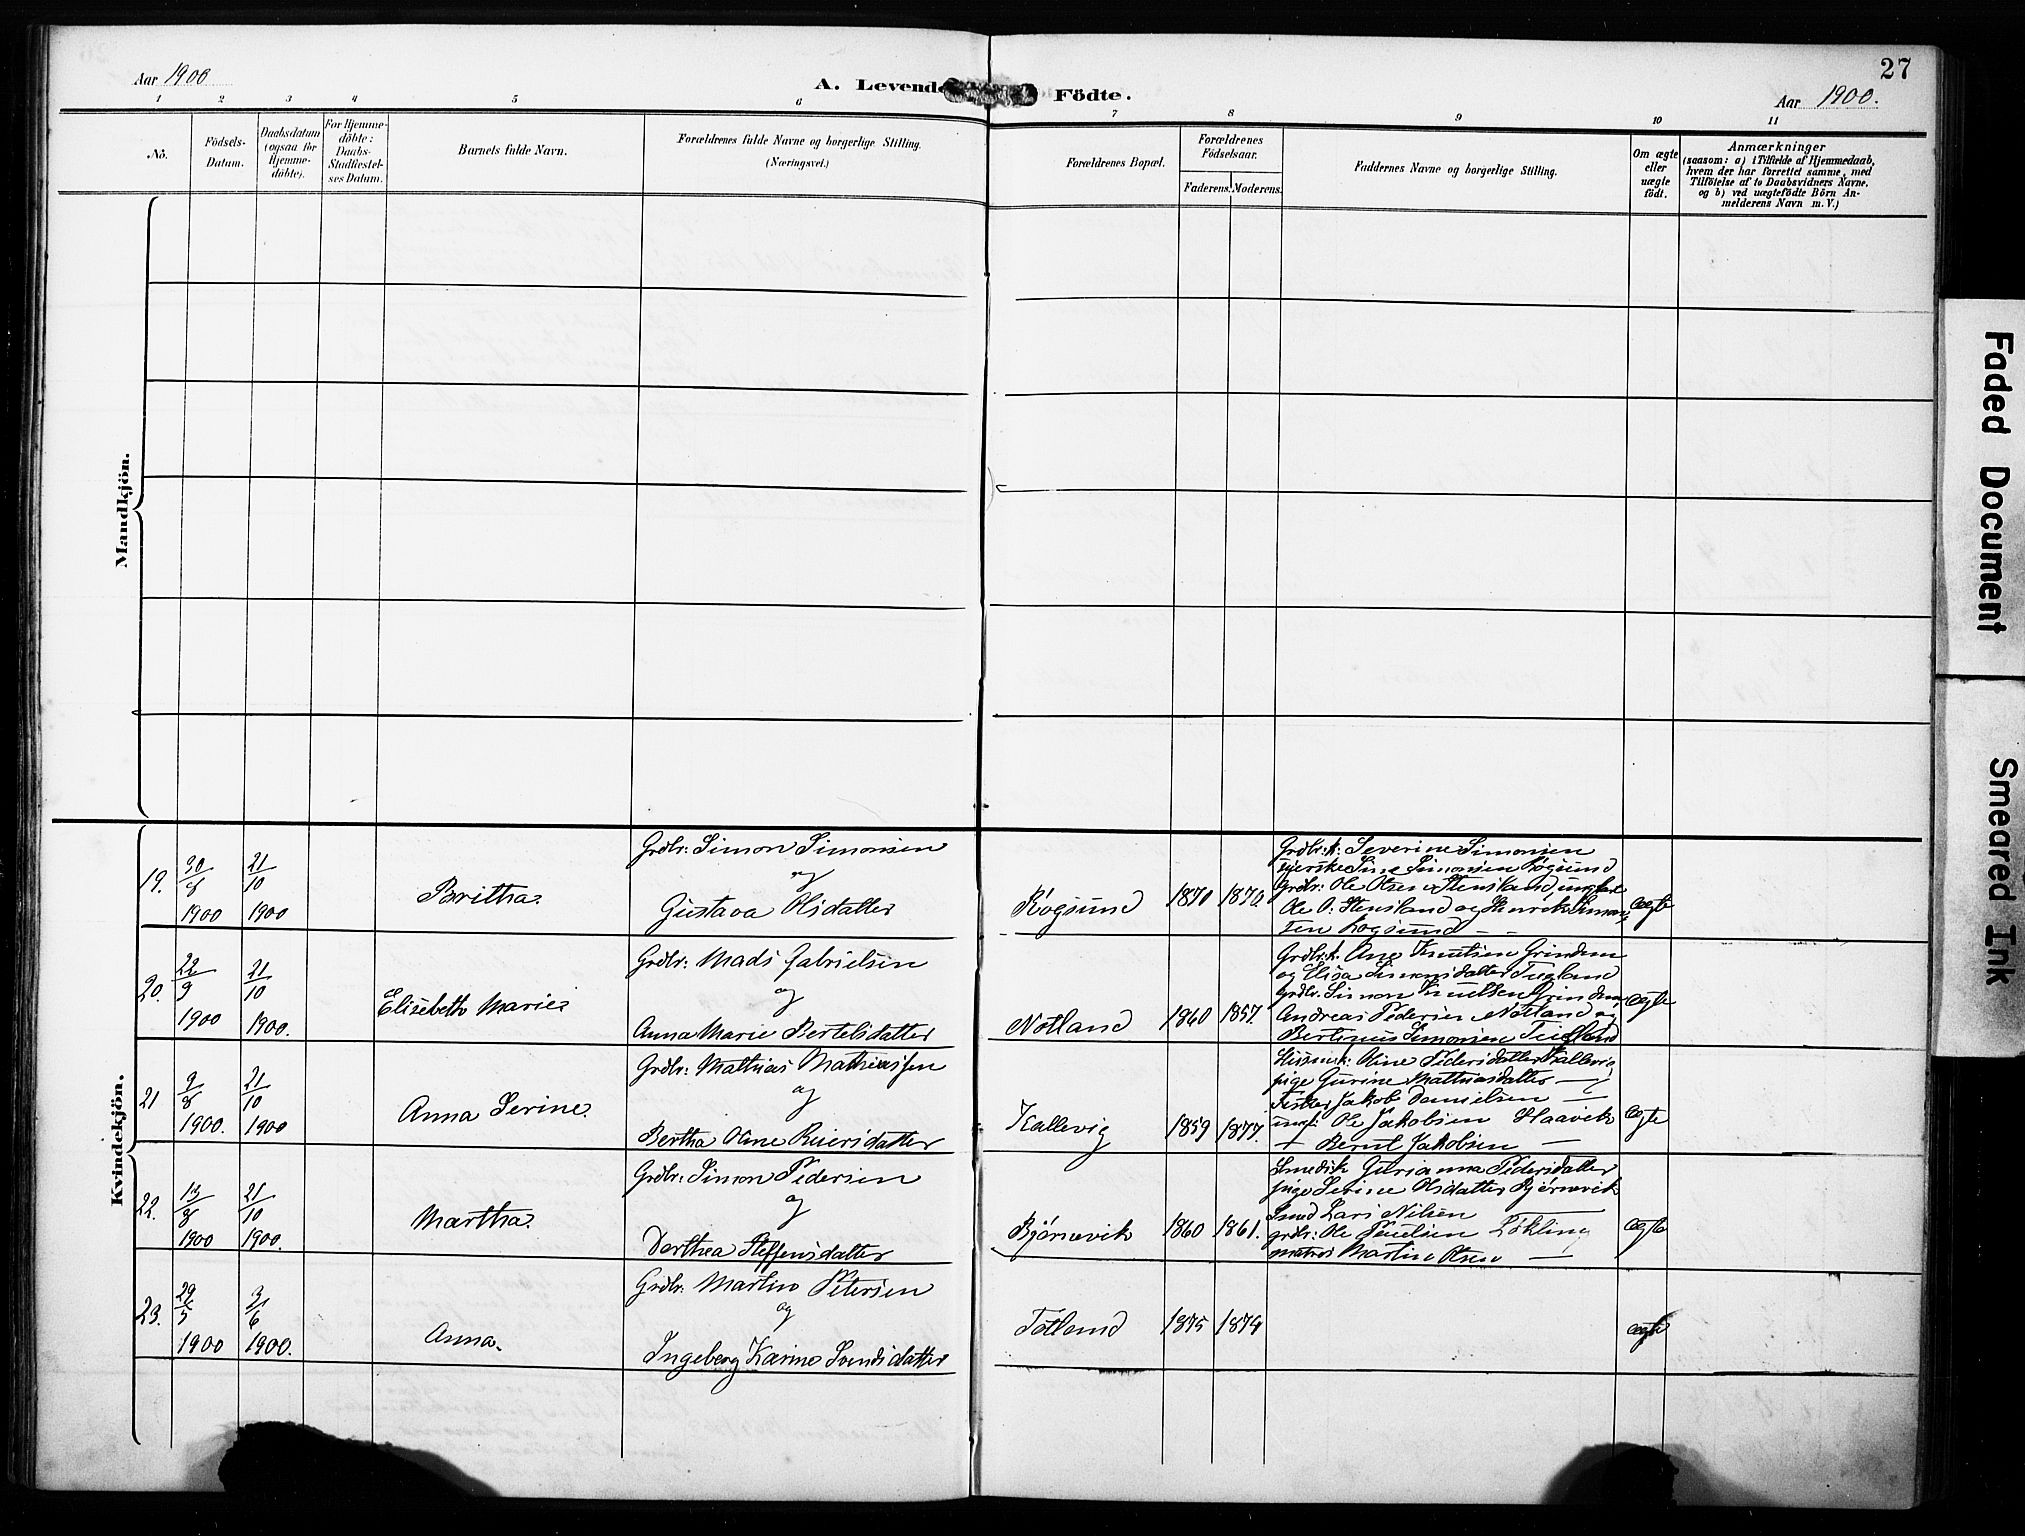 27
Aar 1900
A. Levende Födte.
Aar 1900.
1 2 3 4 5 6 7 8 9 10 11
No.
Födsels-Datum.
Daabsdatum (ogsaa for Hjemme-döbte).
For Hjemme-döbte: Daabs-Stadfæstel-ses Datum.
Barnets fulde Navn.
Forældrenes fulde Navne og borgerlige Stilling. (Næringsvei.)
Forældrenes Bopæl.
Forældrenes Födselsaar.
Faderens. Moderens.
Faddernes Navne og borgerlige Stilling.
Om ægte eller uægte födt.
Anmærkninger
(saasom: a) i Tilfælde af Hjemmedaab,
hvem der har forrettet samme, med
Tilföielse af to Daabsvidners Navne,
og b) ved uægtefödte Börn An-
melderens Navn m. V.)
Mandkjön.
Kvindekjön.
19. 21/10 1900 1900
Britha.
Grdbr: Simon Simonsen
og
Gustava Olsdatter
Røgsund 1870 1870.
Grdbr.k: Severine Simonsen
Sine Simonsen Røgsund
Grdbr: Ole Olsen Stensland ungkar
Ole O. Stensland og Henrik Simon-
sen Røgsund
ægte
20. 22/9 1900 21/10 1900.
Elisebeth Marie
Grdbr: Mads Gabrielsen
og
Anna Marie Bertelsdatter
Nøtland 1860 1857.
Grdbr.k. Ane Knutsen Grindem
og Elisa Simonsdatter
Grdbr. Simon Knutsen Grindem
Andreas Pedersen Nøtland og
Bertinus Simonsen
ægte
21 9/8 1900. 21/10 1900
Anna Serine
Grdbr: Mathias Mathiassen
og
Bertha Oline
Kallevig 1859 1877.
Oline Pedersdatter Kallevig
pige Gurine Mathiasdatter —
Fisker Jakob Danielsen —
Ole Jakobsen Haavik
Bernt Jakobsen —
ægte
22. 13/8 1900 21/10 1900.
Martha.
Grdbr: Simon Pedersen
og
Dorthea Steffensdatter
Bjørnevik 1860 1861.
Gurianna Pedersdatter
pige Serine Olsdatter Bjørnevik
Smed Lars Nilsen
grdbr: Ole Løkling
matros Martin Olsen —
ægte
23. 29/5 1900 3/6 1900.
Anna.
Grdbr: Martin Petersen
og
Ingeborg Karine Svendsdatter
Totland 1875 1879
ægte
Faded Document
Smeared Ink